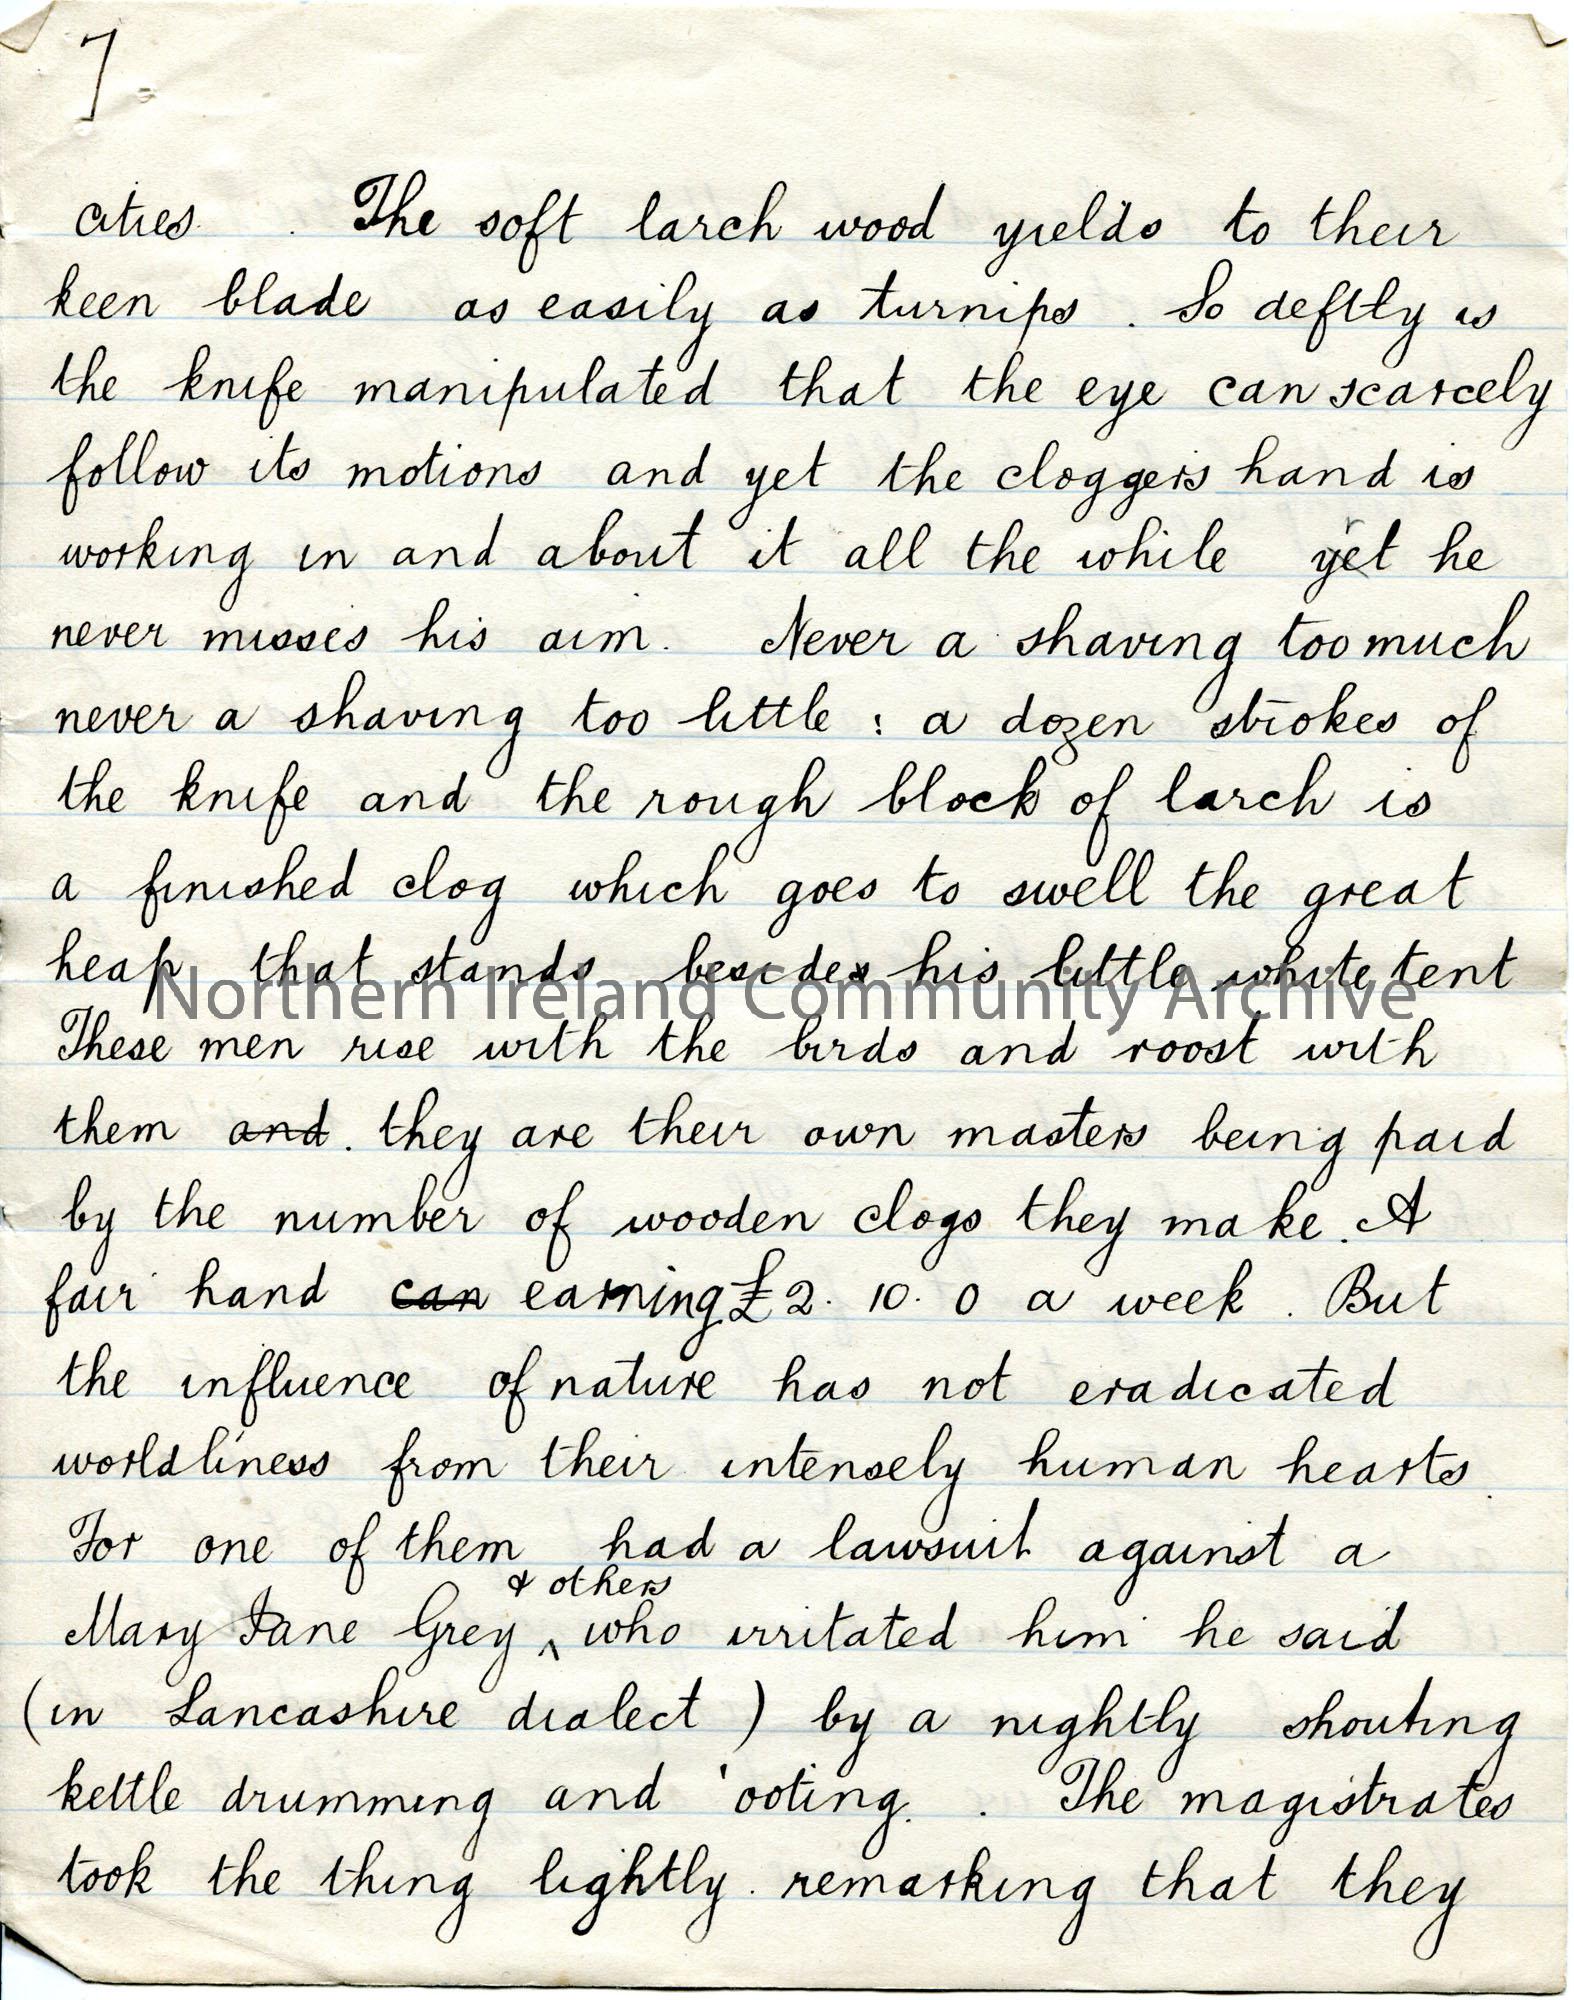 7.
cities. The soft larch wood yields to their
keen blade as easily as turnips. So deftly is
the knife manipulated that the eye can scarcely
follow its motions and yet the cloggers hand is
working in and about it all the while yet he
never misses his aim. Never a shaving too much
never a shaving too little : a dozen strokes of
the knife and the rough block of larch is
a finished clog which goes to swell the great
heap that stands besides his little white tent
Northern Ireland Community Archive
These men rise with the birds and roost with
them and. they are their own masters being paid
by the number of wooden clogs they make. A
fair hand can earning £2. 10. 0 a week. But
the influence of nature has not eradicated
worldliness from their intensely human hearts.
For one of them had a lawsuit against a
& others
Mary Jane Grey ^ who irritated him he said
(in Lancashire dialect) by a nightly shouting
kettle drumming and 'ooting. . The magistrates
took the thing lightly. remarking that they